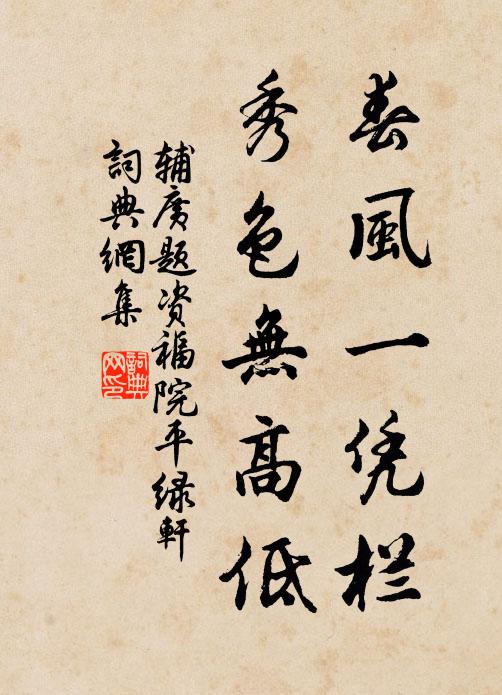 春風一凭栏
秀色無高低
辅廣题资福院平绿軒
詞典網集
詞典网印